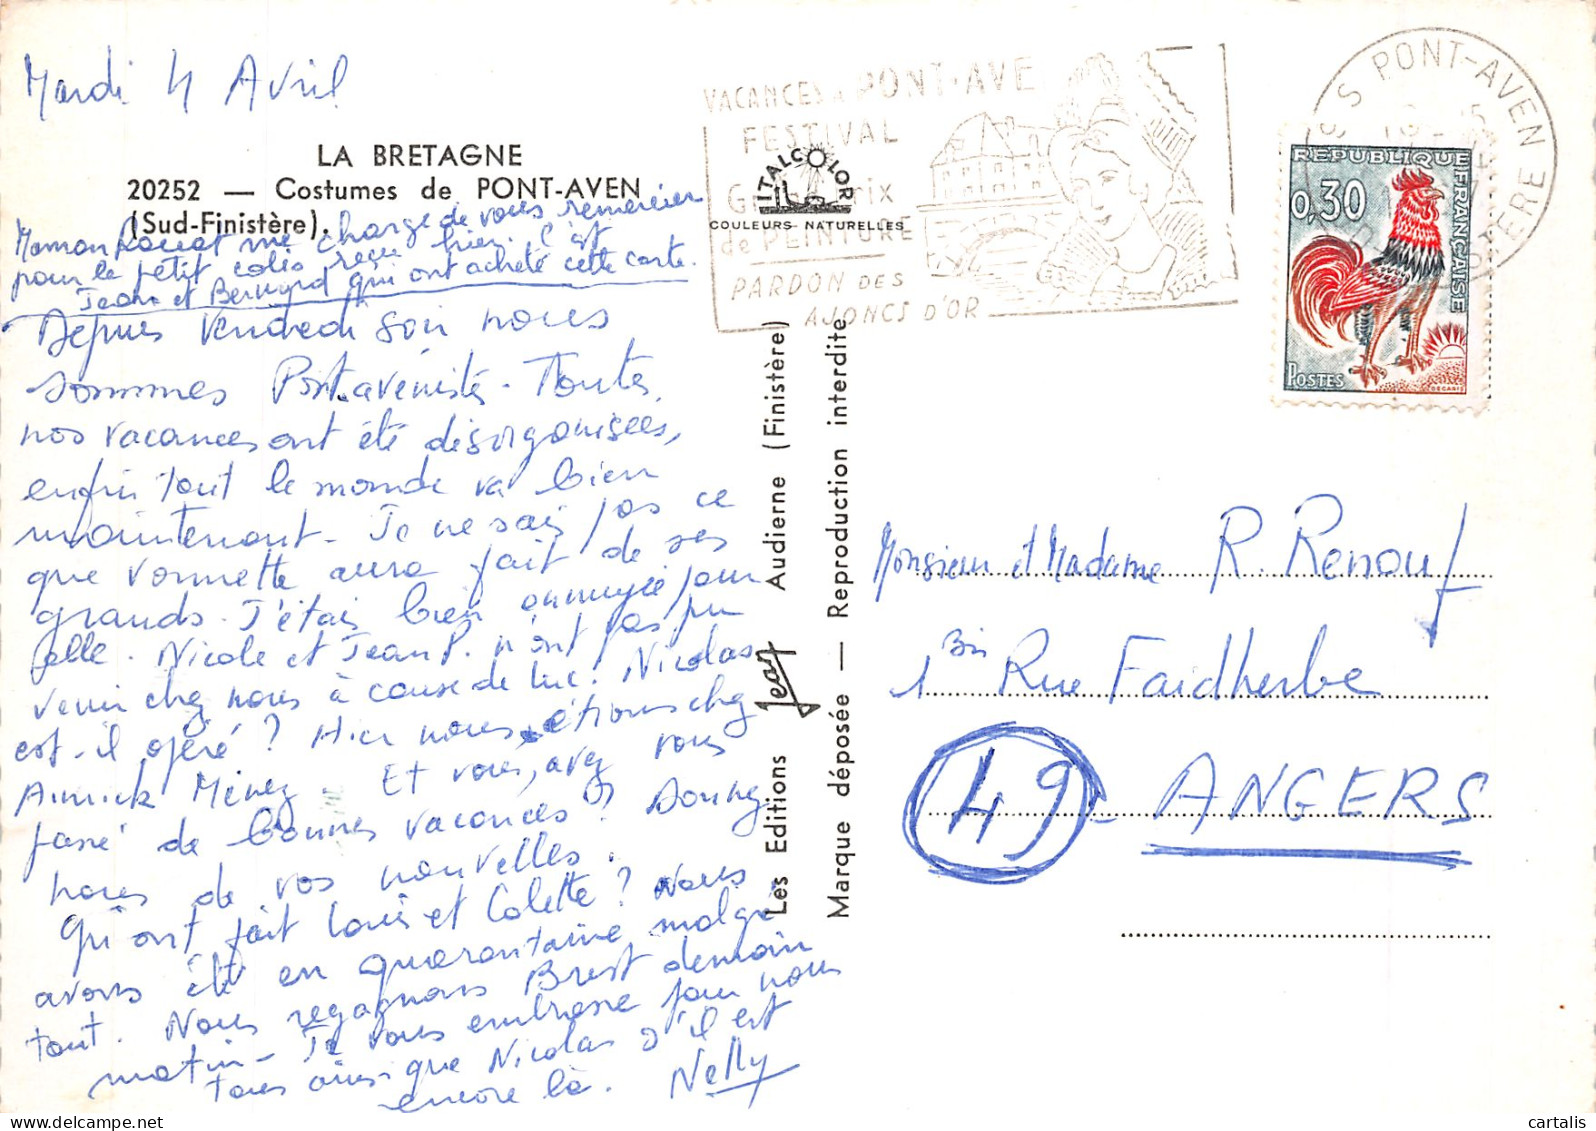 Mardi 4 Avril
LA BRETAGNE
20252 — Costumes de PONT-AVEN
(Sud-Finistère).
Maman me charge de vous remercier
pour le petit colis reçu hier. C'est
Jean et Bernard qui ont acheté cette carte.
Depuis Vendredi soir nous
sommes Pontavéniste - Toutes
nos vacances ont été désorganisées,
enfin tout le monde va bien
maintenant - Je ne sais pas ce
que Vonnette aura fait de ses
grands. J'étais bien ennuyée pour
elle. Nicole et Jean P. n'ont pas pu
venir chez nous à cause de Luc. Nicolas
est-il opéré ? Hier nous étions chez
Annick Ménez. Et vous, avez vous
passé de bonnes vacances ? Donnez
nous de vos nouvelles.
Qu'ont fait Louis et Colette ? Nous
avons été en quarantaine malgré
tout. Nous regagnons Brest demain
matin - Je vous embrasse pour nous
tous ainsi que Nicolas s'il est
encore là. Nelly
VACANCES à PONT-AVE
FESTIVAL
Grand Prix
de PEINTURE
PARDON DES
AJONCS D'OR
ITALCOLOR
COULEURS NATURELLES
S PONT-AVEN
REPUBLIQUE FRANÇAISE
0,30
POSTES
DECARIS
Les Editions Jean Audierne (Finistère)
Marque déposée — Reproduction interdite
Monsieur et Madame R. Renouf
1 bis Rue Faidherbe
49 - ANGERS
cartalis
delcampe.net